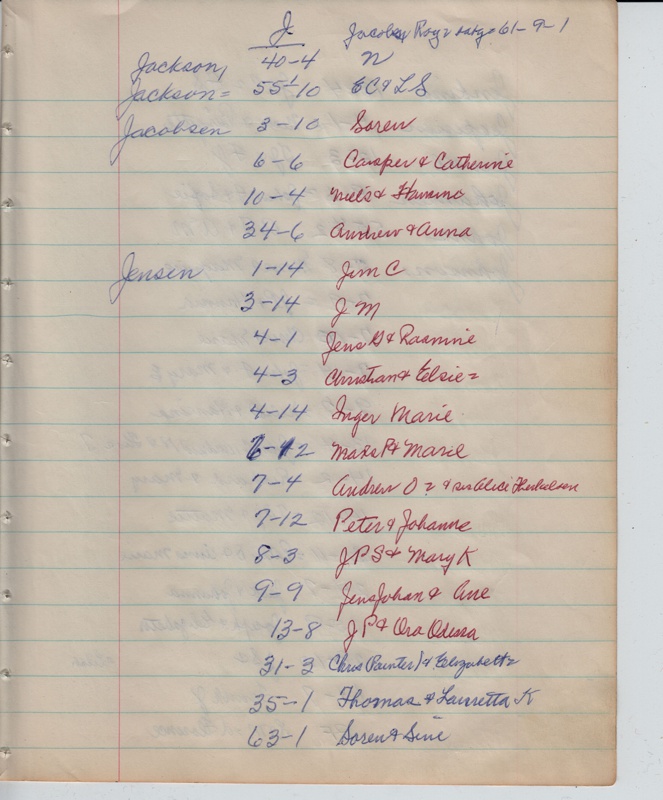 J. Jacobsen Roy 61-9-1
Jackson, 40-4 N
Jackson = 55-10 EC & LS
Jacobsen 3-10 Soren
6-6 Casper & Catherine
10-4 Niels &
34-6 Andrew & Anna
Jensen 1-14 Jim C
3-14 J M
4-1 Jens G & Rasmine
4-3 Christian & Eelsie =
4-14 Inger Marie
6-12 Mads P & Marie
7-4 Andrew O = & Alice
7-12 Peter & Johanne
8-3 J P S & Mary K
9-9 Jens Johan & Ane
13-8 J P & Ora Odessa
31-3 Chris (Painter) & Elizabeth =
35-1 Thomas & Lauretta K
63-1 Soren & Sine